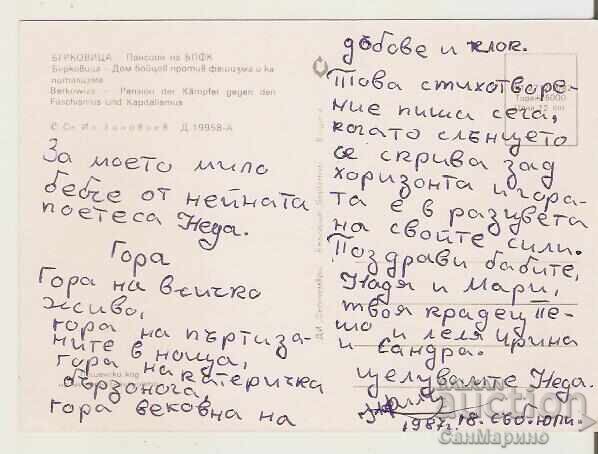 БЕРКОВИЦА Пансион на БПФК
Берковица – Дом бойцов против фашизма и ка
питализма
Berkowiza – Pension der Kämpfer gegen den
Faschismus und Kapitalismus
Д-19958-А
За моето мило
бебче от нейната
поетеса Неда.
Гора
Гора на всичко
живо,
гора на пъртиза-
ните в нощта,
гора на катеричка
бързонога,
гора вековна на
дъбове и клок.
Това стихотворе-
ние пиша сега,
когато слънцето
се скрива зад
хоризонта и гора-
та е в разцвета
на своите сили.
Поздрави бабите,
Надя и Мари,
твоя крадец Пе-
шо и леля Ирина
и Сандра.
Целувам те Неда.
1987г. 18.
auction
СанМарино